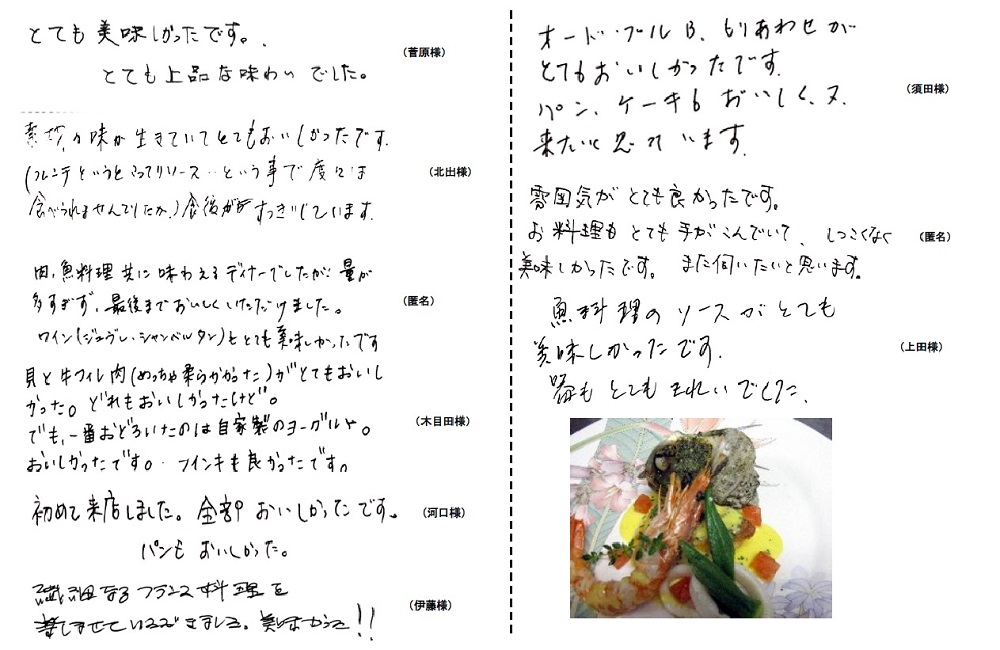 とても美味しかったです。
(菅原様)
とても上品な味わいでした。
素材の味が生きていてとてもおいしかったです。
(フレンチというとこってりソース…という事で度々は
(北出様)
食べられませんでしたが。)食後がすっきりしています。
肉、魚料理共に味わえるディナーでしたが、量が
多すぎず、最後までおいしくいただけました。
(匿名)
ワイン(ジュヴレ・シャンベルタン)もとても美味しかったです
貝と牛フィレ肉(めっちゃ柔らかかった)がとてもおいし
かった。どれもおいしかったけど。
(木目田様)
でも、一番おどろいたのは自家製のヨーグルト。
おいしかったです。フインキも良かったです。
初めて来店しました。全部おいしかったです。
(河口様)
パンもおいしかった。
繊細なるフランス料理を
(伊藤様)
楽しませていただきました。美味かった!!
オードブルB、もりあわせが
とてもおいしかったです。
(須田様)
パン、ケーキもおいしく、又、
来たいと思っています。
雰囲気がとても良かったです。
お料理もとても手がこんでいて、しつこくなく
(匿名)
美味しかったです。また伺いたいと思います。
魚料理のソースがとても
美味しかったです。
(上田様)
器もとてもきれいでした。